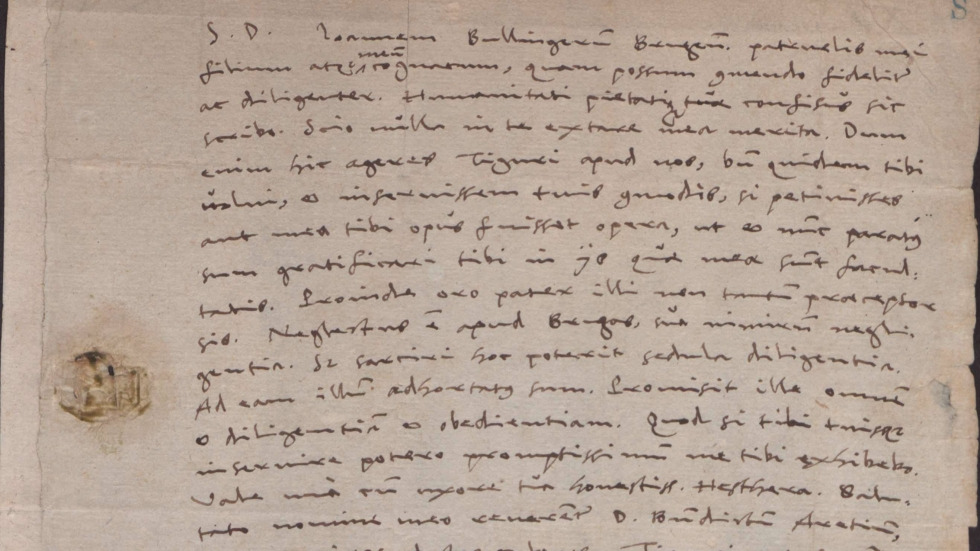 S. D. Ioannem Bullingerū Brugeñ. patruelis mei
filium atqꝫ meū cognatum, quam possum ꝯmendo fideliť
ac diligenter. Humanitati pietatiqꝫ tuæ confisus sic
scribo. Scio nulla in te extare mea merita. Dum
enim hic ageres Tiguri apud nos, bñ quidem tibi
uolui, et inseruissem tuis ꝯmodis, si petiuisses
aut mea tibi opus fuisset opera, ut et nunc paratꝰ
sum gratificari tibi in ijs quæ meæ sunt facul-
tatis. Proinde oro pater illi non tantū præceptor
sis. Neglectus ē apud Brugas, sua nimirū negli-
gentia. Sz sarciri hoc poterit sedula diligentia.
Ad eam illū adhortatꝰ sum. Promisit ille omnē
et diligentiā et obedientiam. Quod si tibi tuisqꝫ
inseruire potero promptissimū me tibi exhibebo.
Vale cū uxore tua honestiss. Hesthera. Salu-
tato nomine meo D. Bñdictū Aretium,